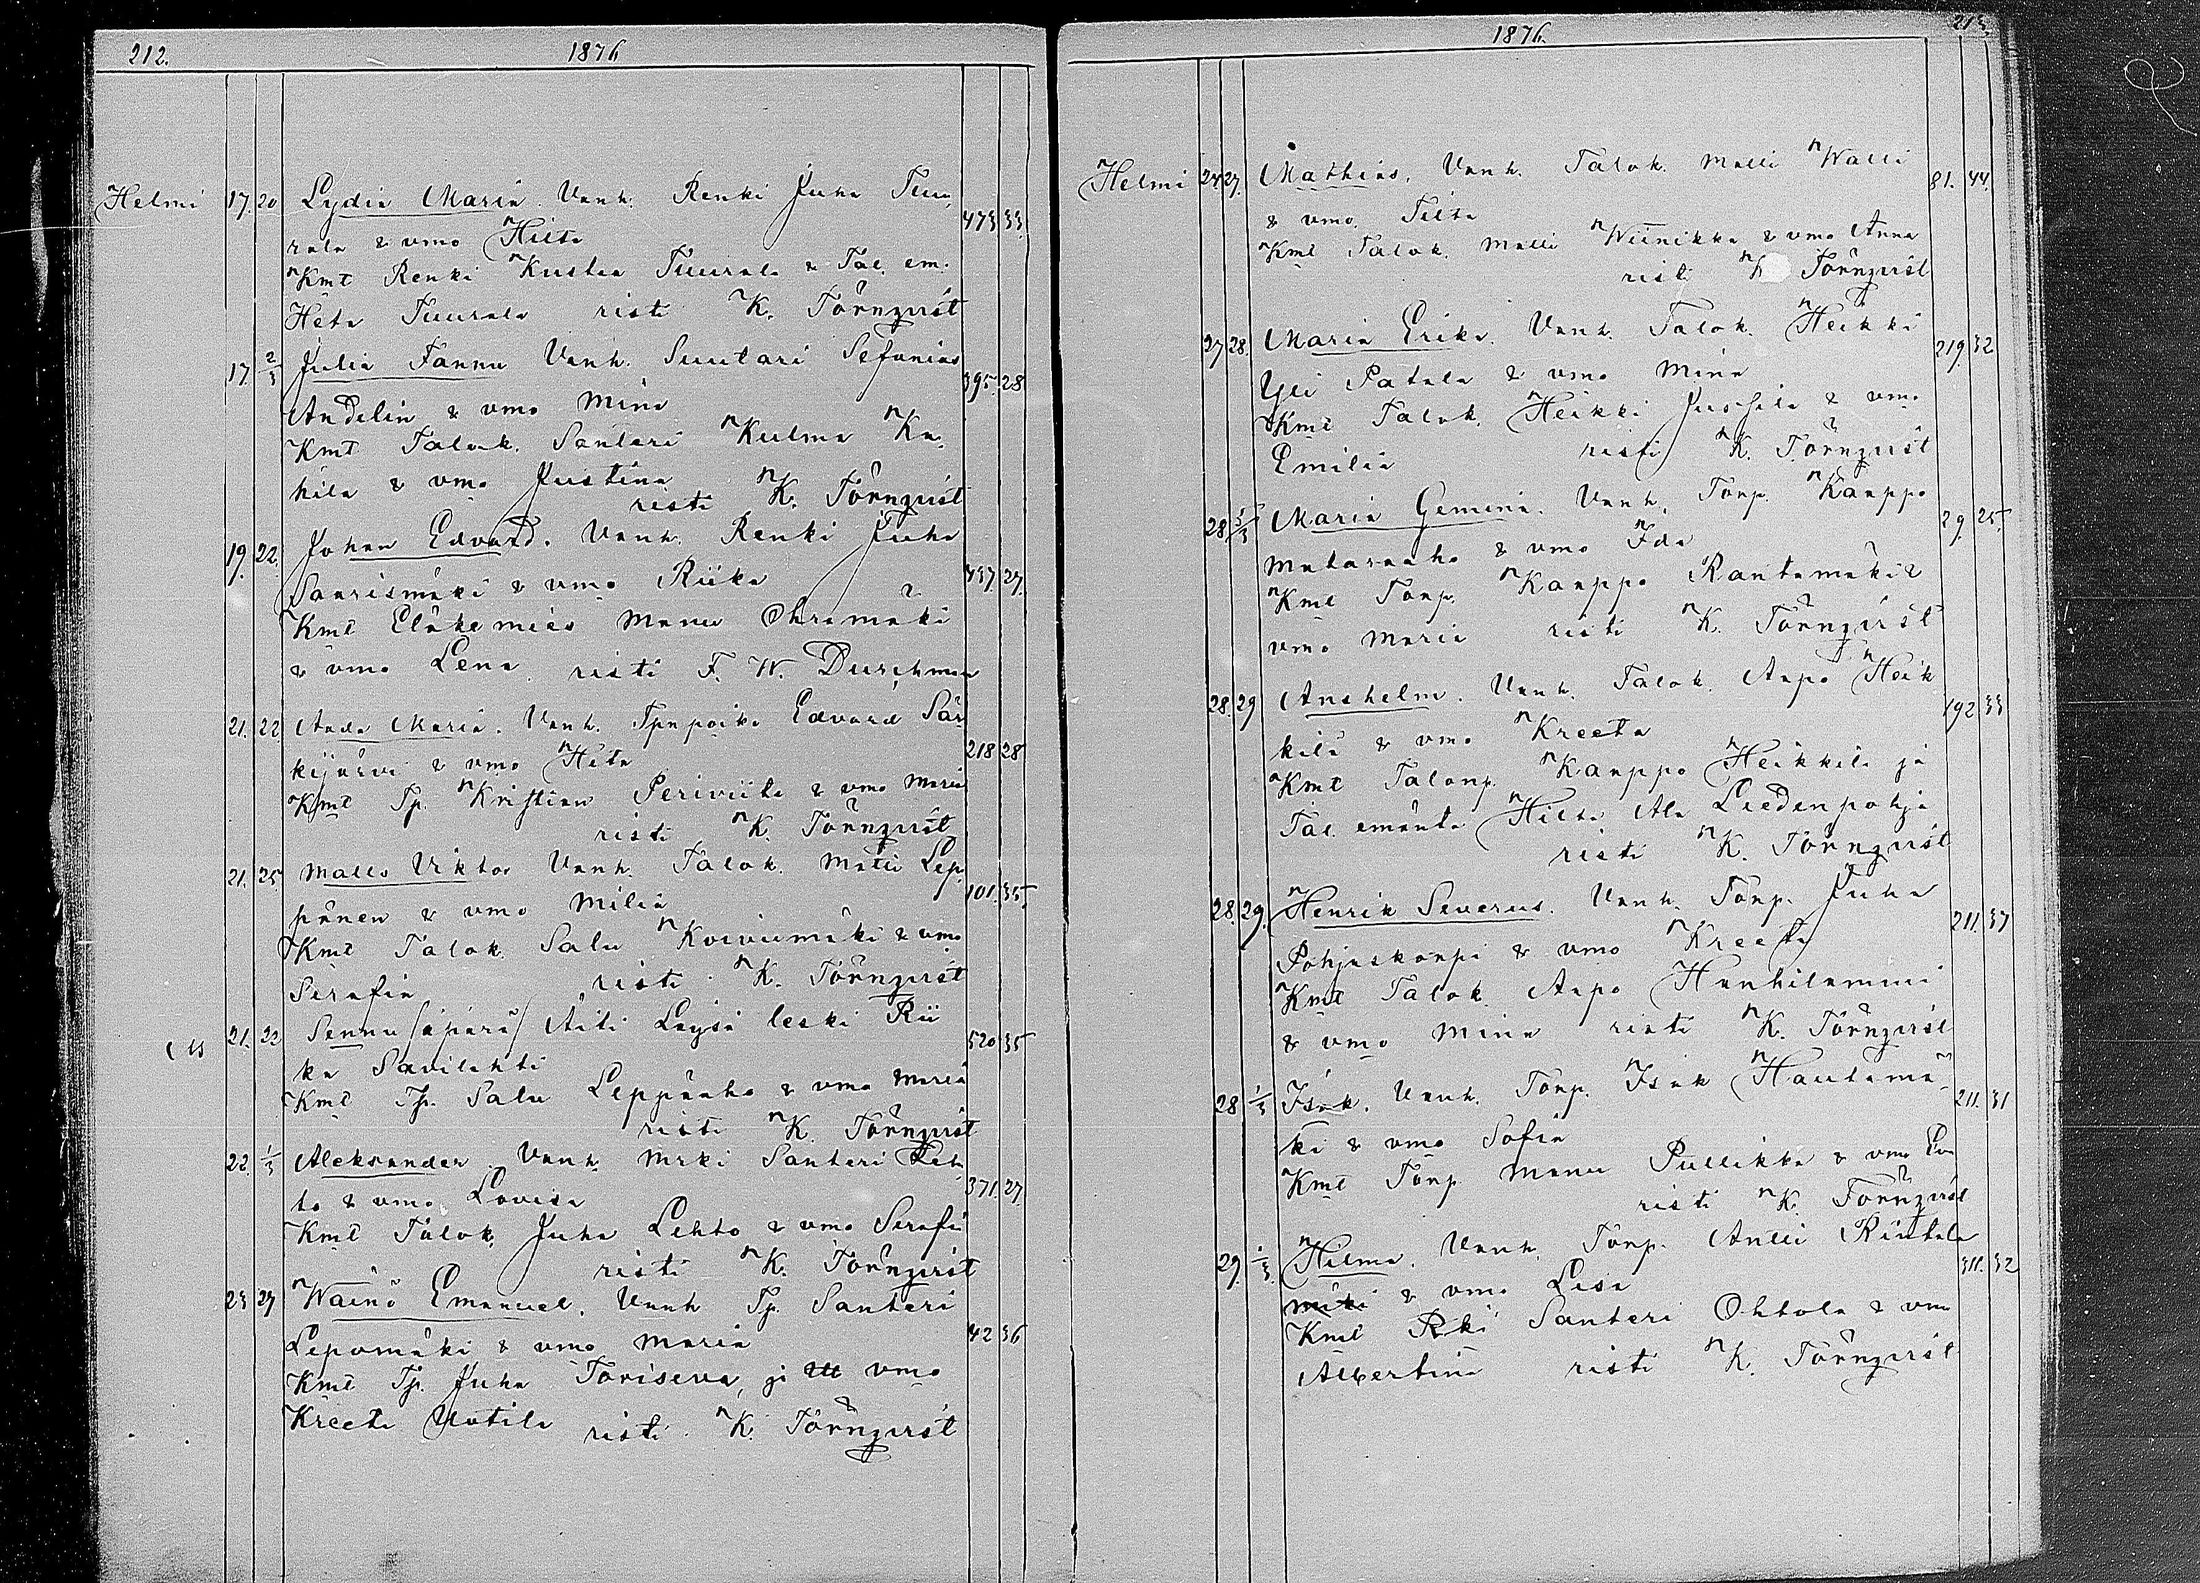 212. 1876
Helmi 17. 20 Lydia Maria. Vanh. Renki Juha Tuu
rala & vmo Hilta 473 33.
Kmt Renki Kustaa Tuurala & Tal. em.
Heta Tuurala risti K. Törnqvist
17. 2/3 Julia Fannu Vanh. Suutari Sefanias
Andelin & vmo Mina 395. 28
Kmt Talok. Santeri Kulma Ka
hila & vmo Justina
risti K. Törnqvist
19. 22. Johan Edvard. Vanh. Renki Juha
Saarismäki & vmo Riika 437 27.
Kmt Eläkemies Manu Ohramäki
& vmo Lena risti F. W. Durchman
21. 22. Aada Maria. Vanh. Tpnpoika Edvard Sär
kijärvi & vmo Heta 218 28
Kmt Tp. Kristian Periviita & vmo Maria
risti K. Törnqvist
21. 25 Matts Viktor Vanh. Talok. Matti Lep
pänen & vmo Milia 101. 35.
Kmt Talok. Salu Koivumäki & vmo
Serafia risti K. Törnqvist
21. 22 Sennu (äpärä) Äiti Loysä leski Rii
ka Savilahti 520 35
Kmt Tp. Salu Leppäaho & vmo Maria
risti K. Törnqvist
22. 1/3 Aleksander. Vanh. Mrki Santeri Leh
to & vmo Lovisa 371. 27.
Kmt Talok. Juha Lehto & vmo Serafii
risti K. Törnqvist
23 27 Wäinö Emanuel. Vanh Tp. Santeri
Lepomäki & vmo Maria 42 36
Kmt Tp. Juha Toriseva, ja vmo
Kreeta Uotila risti K. Törnqvist
1876. 213.
Helmi 24 27. Mathias. Vanh. Talok. Matti Walli 81. 44.
& vmo Tilta
Kmt Talok. Matti Wiinikka & vmo Anna
risti K Törnqvist
27 28. Maria Erika. Vanh. Talok. Heikki
Yli Patala & vmo Mina 219. 32
Kmt Talok. Heikki Jussila & vmo
Emilia risti K. Törnqvist
28. 5/3 Maria Gemina. Vanh. Torp. Kaappo
Mataraaho & vmo Ida 29. 25.
Kmt Torp. Kaappo Rantamäki &
vmo Maria risti K. Törnqvist
28. 29 Anshelm. Vanh. Talok. Aapo Heik
kilä & vmo Kreeta 192 33
Kmt Talonp. Kaappo Heikkilä ja
Tal. emäntä Hilta Ala Liedenpohja
risti K. Törnqvist
28. 29. Henrik Severus. Vanh. Torp. Juha
Pohjaskorpi & vmo Kreeta 211. 37
Kmt Talok. Aapo Hanhilammi
& vmo Mina risti K. Törnqvist
28 1/3 Isak. Vanh. Torp. Isak Hautamä 211. 31
ki & vmo Sofia
Kmt Torp Manu Pullikka & vmo Eva
risti K. Törnqvist
29. 1/3. Hilma. Vanh. Torp. Antti Rintala
mäki & vmo Lisa 311. 32
Kmt Rki Santeri Ohtola & vmo
Albertina risti K. Törnqvist